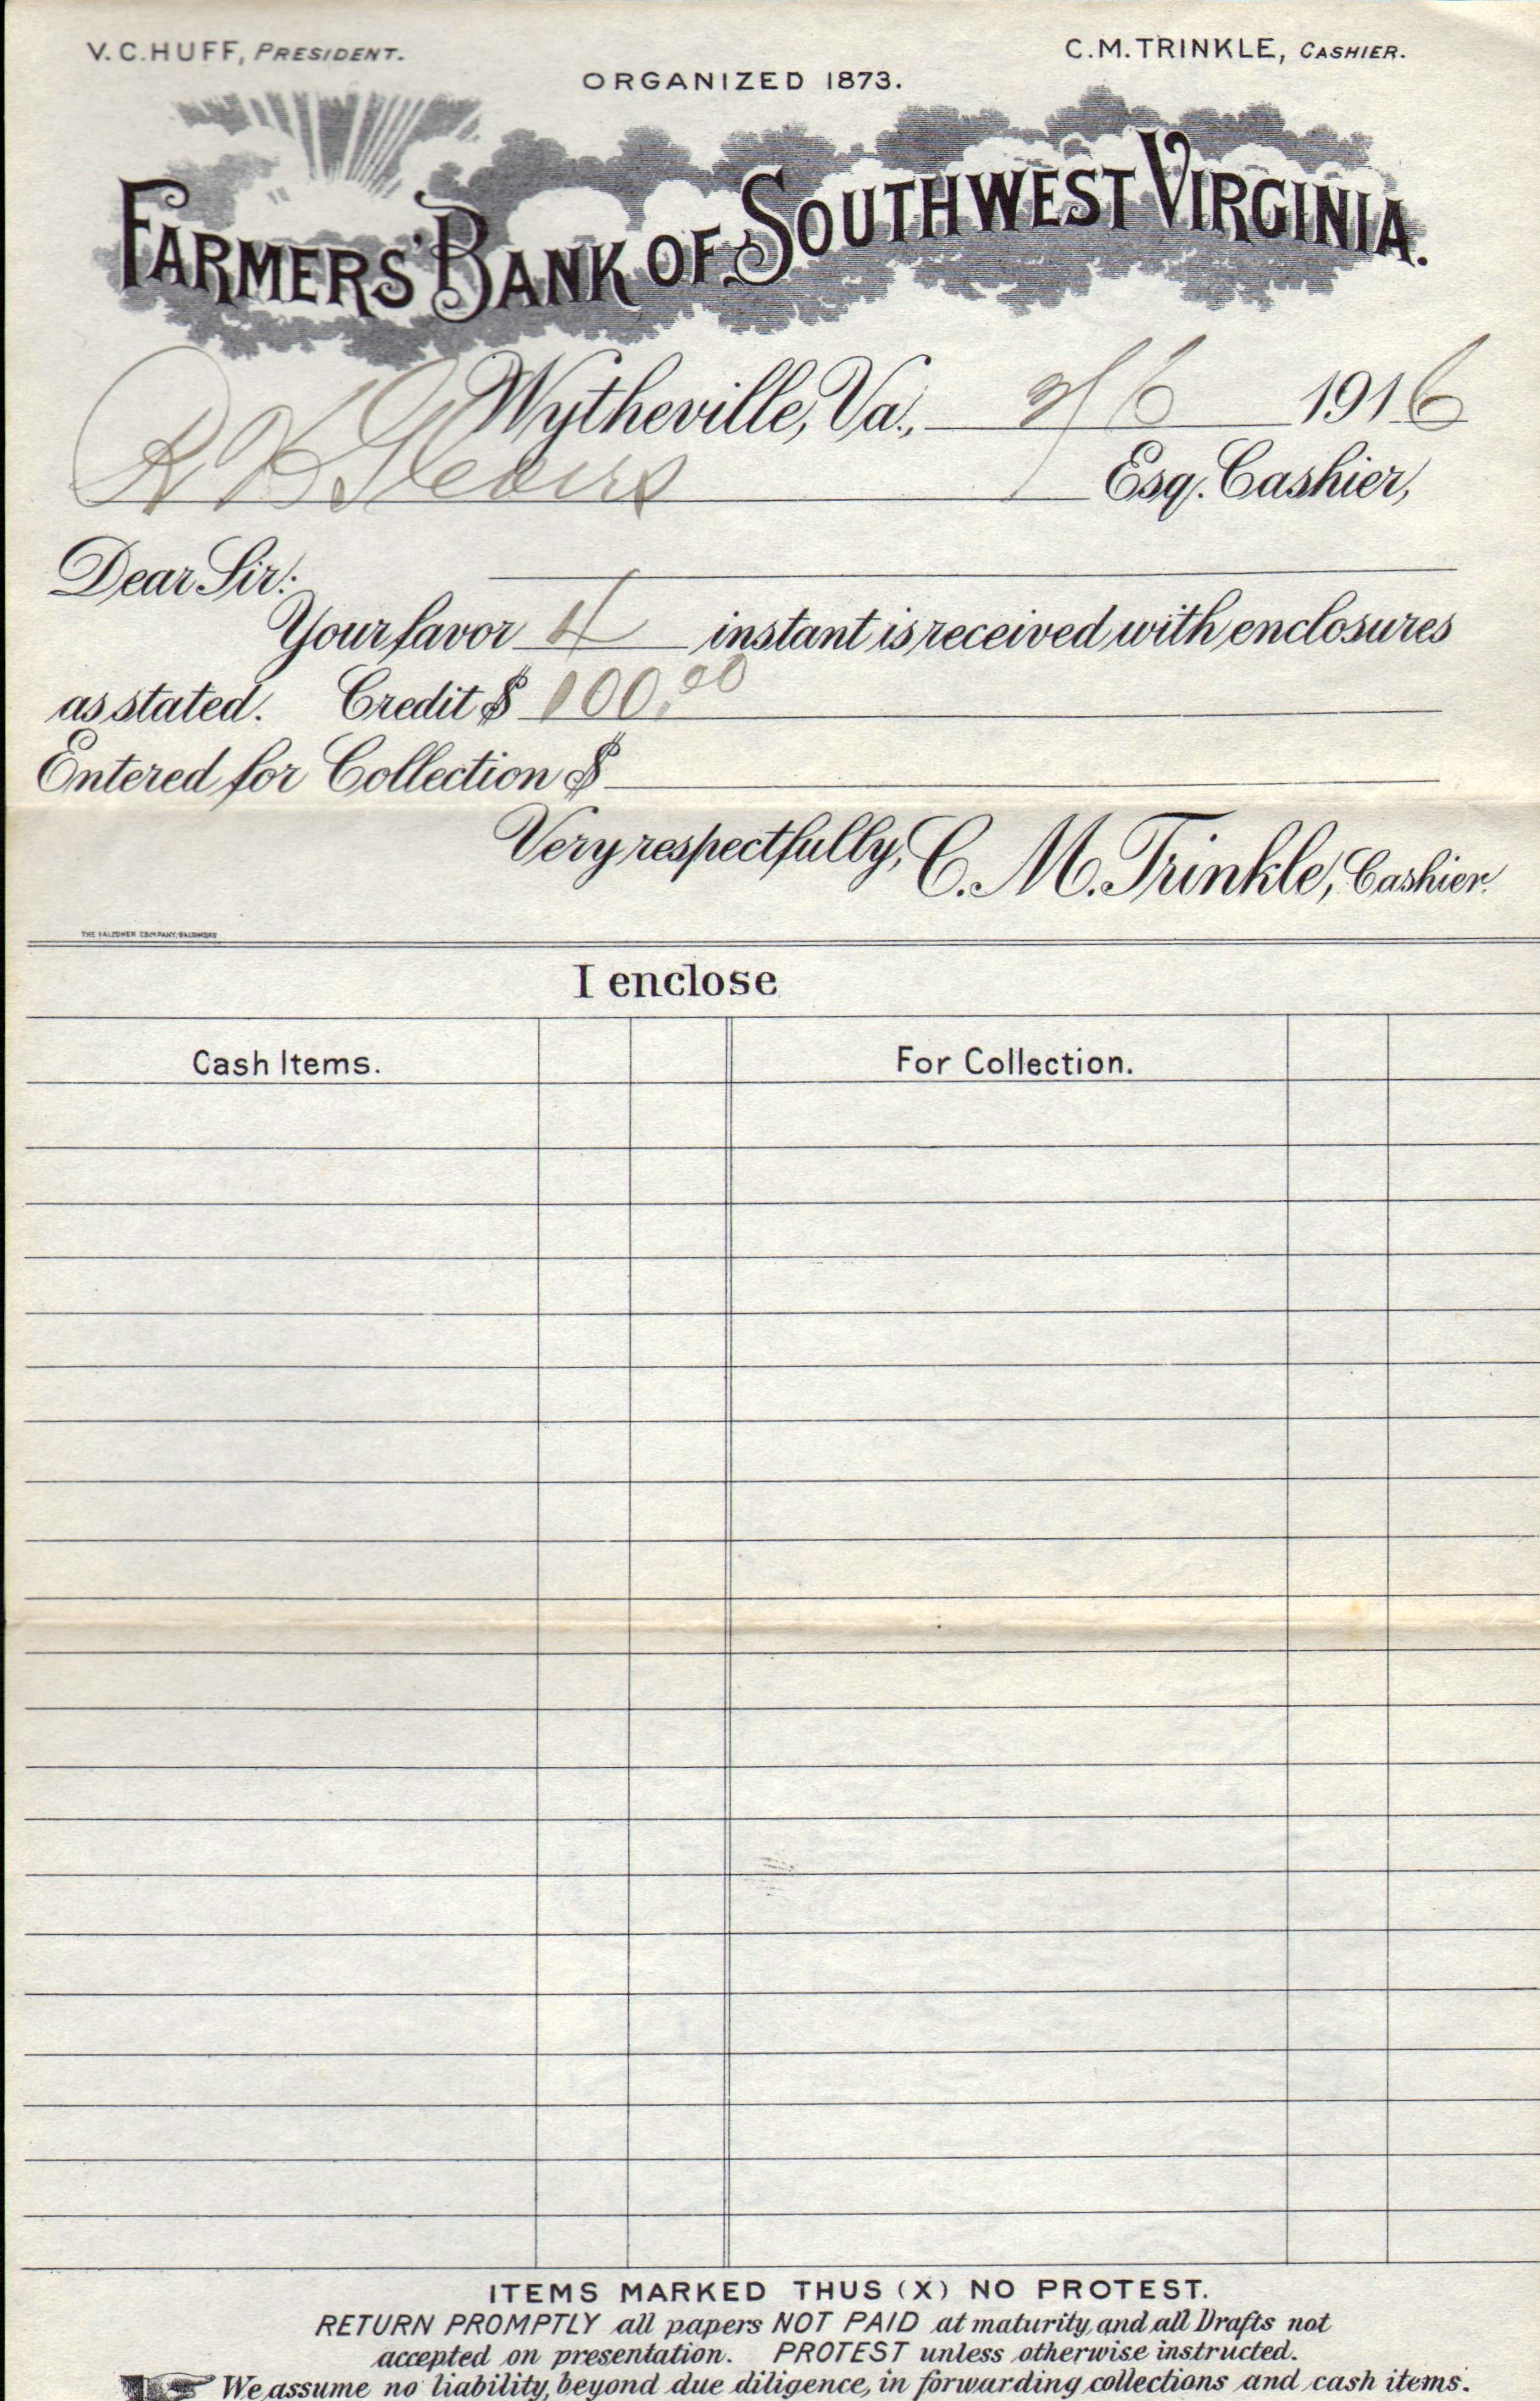 V. C. HUFF, PRESIDENT.
C. M. TRINKLE, CASHIER.
ORGANIZED 1873.
FARMERS' BANK OF SOUTHWEST VIRGINIA.
Wytheville, Va., 2/6 1916
R B Stevens Esq. Cashier,
Dear Sir:
Your favor 4 instant is received with enclosures
as stated. Credit $ 100.00
Entered for Collection $
Very respectfully, C. M. Trinkle, Cashier.
THE COMPANY, BALTIMORE
I enclose
Cash Items. For Collection.
ITEMS MARKED THUS (X) NO PROTEST.
RETURN PROMPTLY all papers NOT PAID at maturity, and all Drafts not
accepted on presentation. PROTEST unless otherwise instructed.
We assume no liability, beyond due diligence, in forwarding collections and cash items.